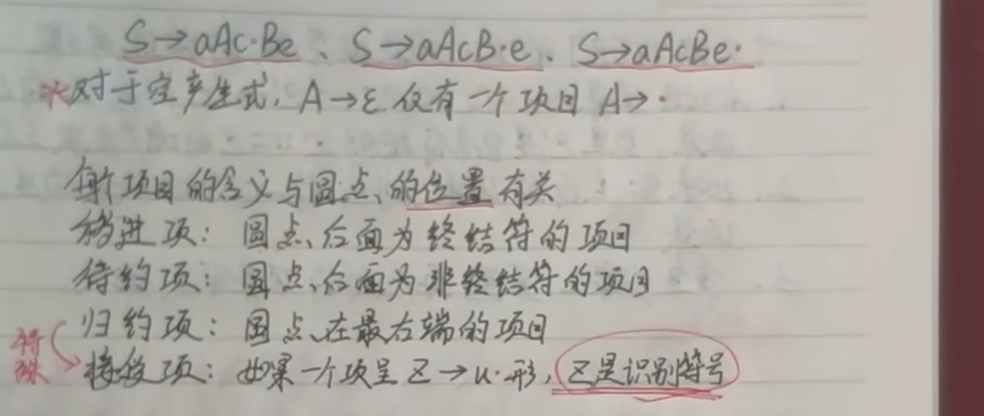 S→aAc·Be、S→aAcB·e、S→aAcBe·
*对于空产生式，A→ε仅有一个项目 A→·
每个项目的含义与圆点的位置有关
移进项：圆点后面为终结符的项目
待约项：圆点后面为非终结符的项目
归约项：圆点在最右端的项目
特殊
接受项：如果一个项呈 Z→u·形，Z是识别符号